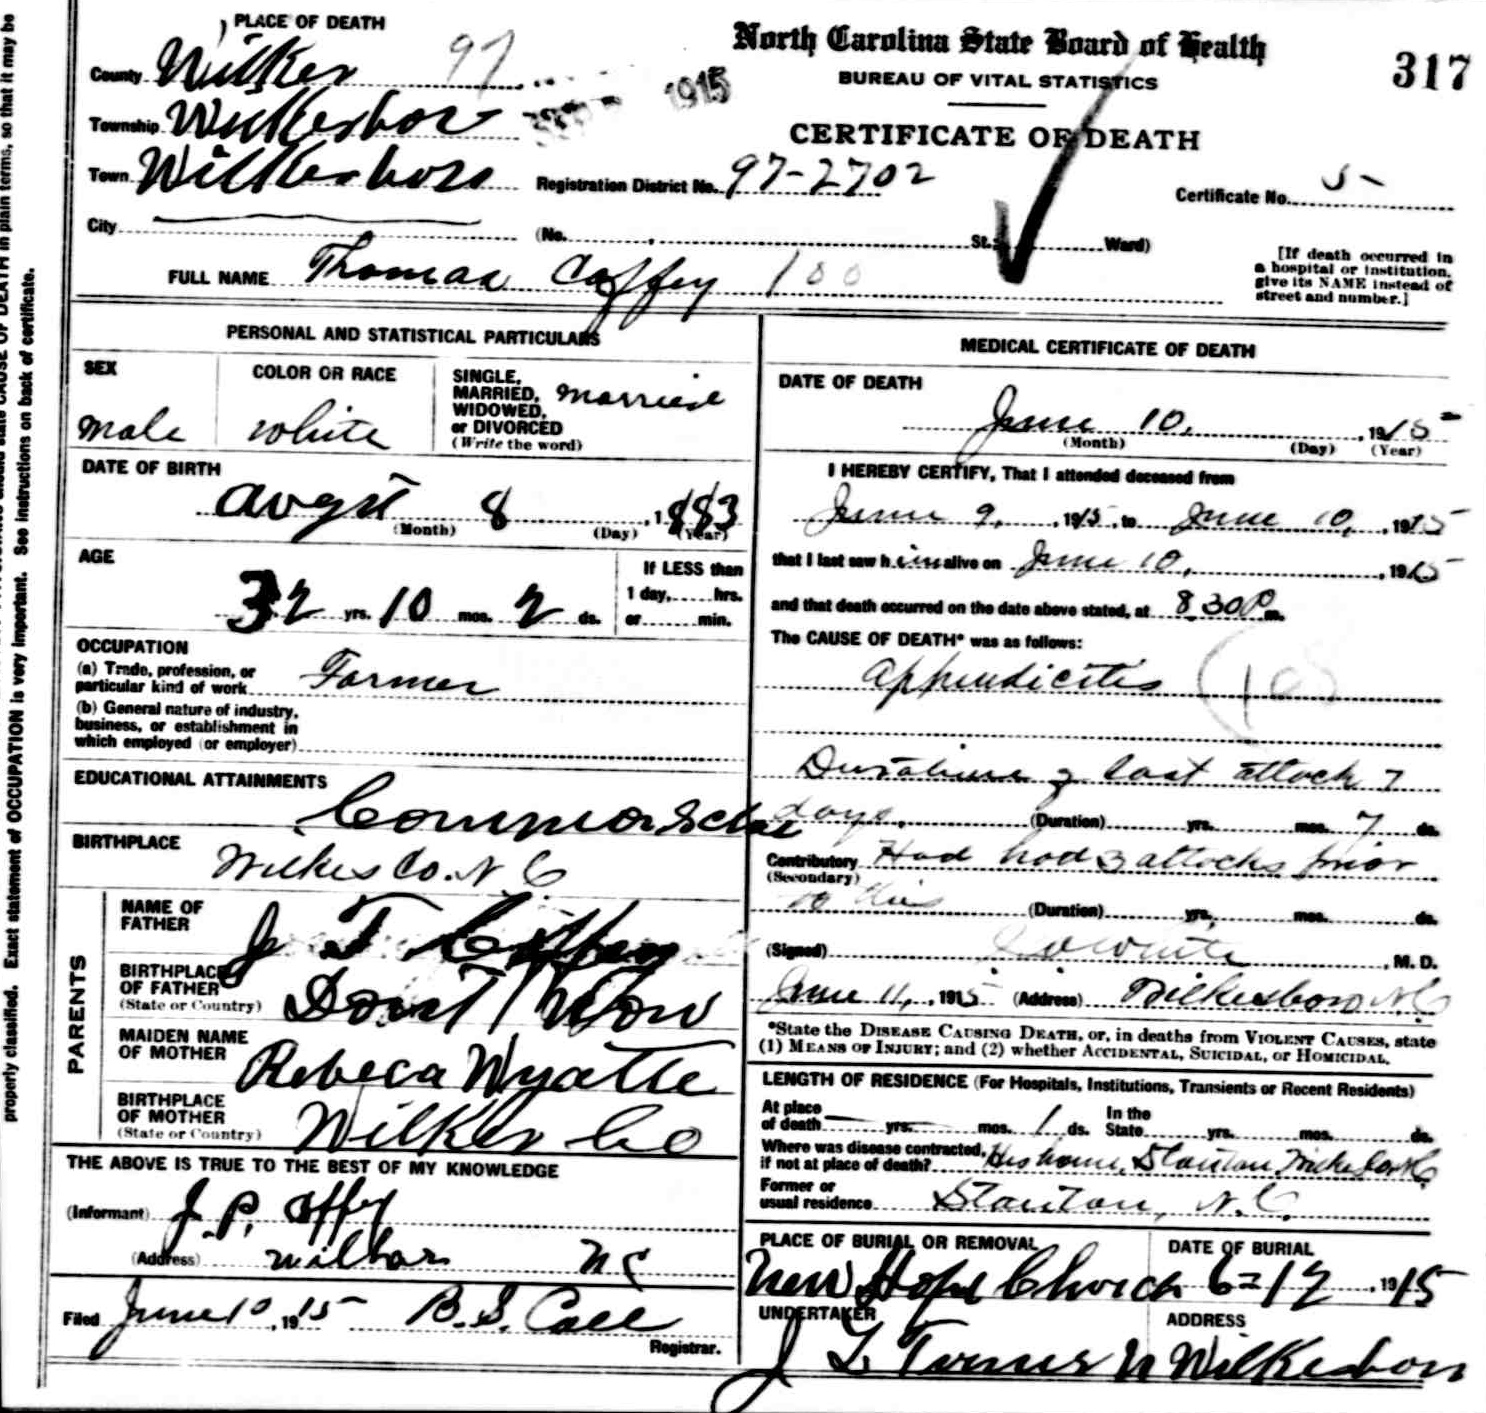 PLACE OF DEATH
County Wilkes 97
Township Wilkesboro
Town Wilkesboro
City
North Carolina State Board of Health
317
BUREAU OF VITAL STATISTICS
1915
CERTIFICATE OF DEATH
Registration District No. 97-2702
Certificate No. 5
(No. St.; Ward)
FULL NAME Thomas Caffey 100
[If death occurred in
a hospital or institution,
give its NAME instead of
street and number.]
PERSONAL AND STATISTICAL PARTICULARS
SEX
male
COLOR OR RACE
white
SINGLE,
MARRIED,
WIDOWED,
or DIVORCED
(Write the word)
married
DATE OF BIRTH
8, 1883
(Month) (Day) (Year)
AGE
32 yrs. 10 mos. 2 ds.
If LESS than
1 day, hrs.
or min.
OCCUPATION
(a) Trade, profession, or
particular kind of work Farmer
(b) General nature of industry,
business, or establishment in
which employed (or employer)
EDUCATIONAL ATTAINMENTS
Common
BIRTHPLACE
Wilkes Co. N C
PARENTS
NAME OF
FATHER
J T
BIRTHPLACE
OF FATHER
(State or Country)
MAIDEN NAME
OF MOTHER
Rebeca Wyatte
BIRTHPLACE
OF MOTHER
(State or Country)
Wilkes Co
THE ABOVE IS TRUE TO THE BEST OF MY KNOWLEDGE
(Informant) J. P.
(Address) Wilbar NC
Filed June 10, 1915 B. S. Call
Registrar.
MEDICAL CERTIFICATE OF DEATH
DATE OF DEATH
June 10, 1915
(Month) (Day) (Year)
I HEREBY CERTIFY, That I attended deceased from
June 9, 1915, to June 10, 1915
that I last saw him alive on June 10, 1915
and that death occurred on the date above stated, at 8 30 P m.
The CAUSE OF DEATH* was as follows:
Appendicitis
Duration of last attack 7
days. (Duration) yrs. mos. 7 ds.
Contributory Had had 3 attacks prior
(Secondary)
to this (Duration) yrs. mos. ds.
(Signed) White, M. D.
June 11, 1915 (Address) Wilkesboro N C
*State the DISEASE CAUSING DEATH, or, in deaths from VIOLENT CAUSES, state
(1) MEANS OF INJURY; and (2) whether ACCIDENTAL, SUICIDAL, or HOMICIDAL.
LENGTH OF RESIDENCE (For Hospitals, Institutions, Transients or Recent Residents)
At place
of death yrs. mos. 1 ds.
In the
State yrs. mos. ds.
Where was disease contracted,
if not at place of death? His home, Stanton, N C
Former or
usual residence Stanton, N. C.
PLACE OF BURIAL OR REMOVAL
New Hope Church
DATE OF BURIAL
6-12, 1915
UNDERTAKER
J L Turner
ADDRESS
N Wilkesboro
properly classified. Exact statement of OCCUPATION is very important. See instructions on back of certificate.
CAUSE OF DEATH in plain terms, so that it may be